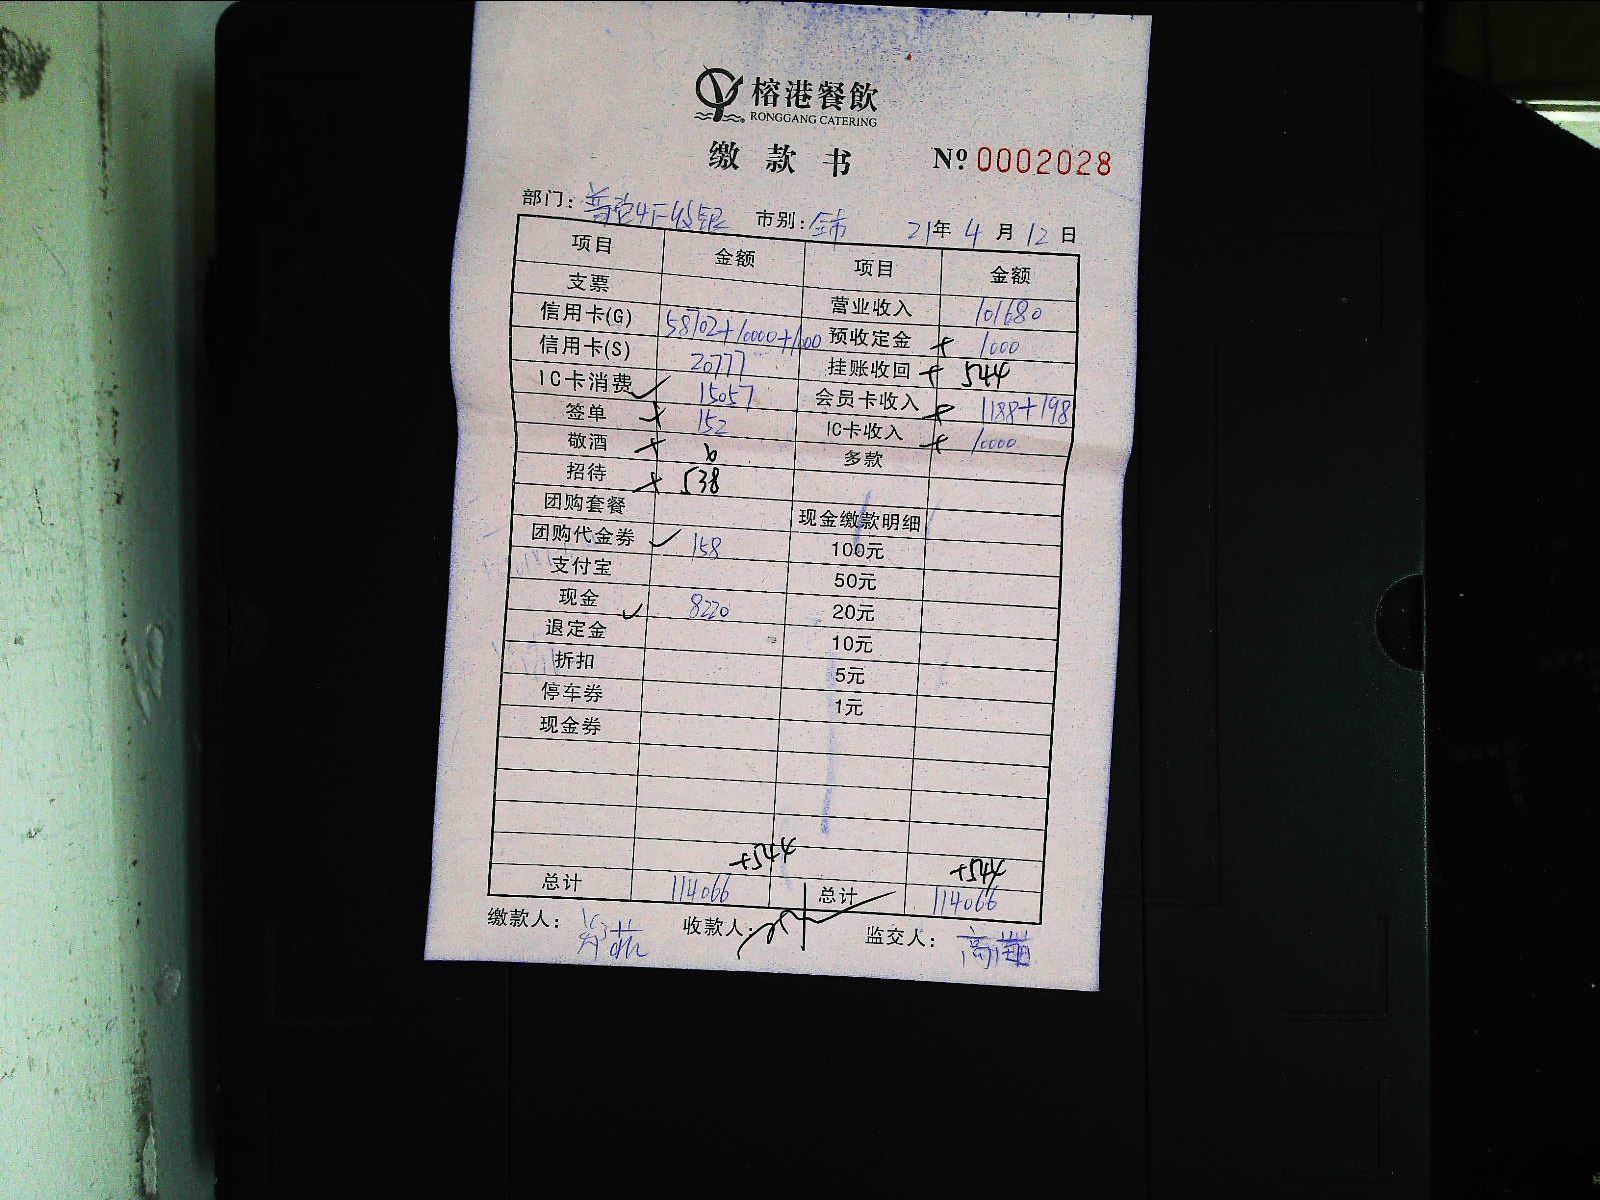 榕港餐飲
RONGGANG CATERING
缴款书 № 0002028
部门: 市别: 全市 21年4月12日
项目 金额 项目 金额
支票 营业收入 101680
信用卡(G) 58702+10000+1000 预收定金 + 1000
信用卡(S) 20777 挂账收回 + 544
IC卡消费 ✓ 15057 会员卡收入 + 1188+198
签单 + 152 IC卡收入 + 10000
敬酒 + 6 多款
招待 + 538
团购套餐 现金缴款明细
团购代金券 ✓ 158 100元
支付宝 50元
现金 ✓ 8220 20元
退定金 10元
折扣 5元
停车券 1元
现金券
+544 +544
总计 114066 总计 114066
缴款人: 收款人: 监交人: